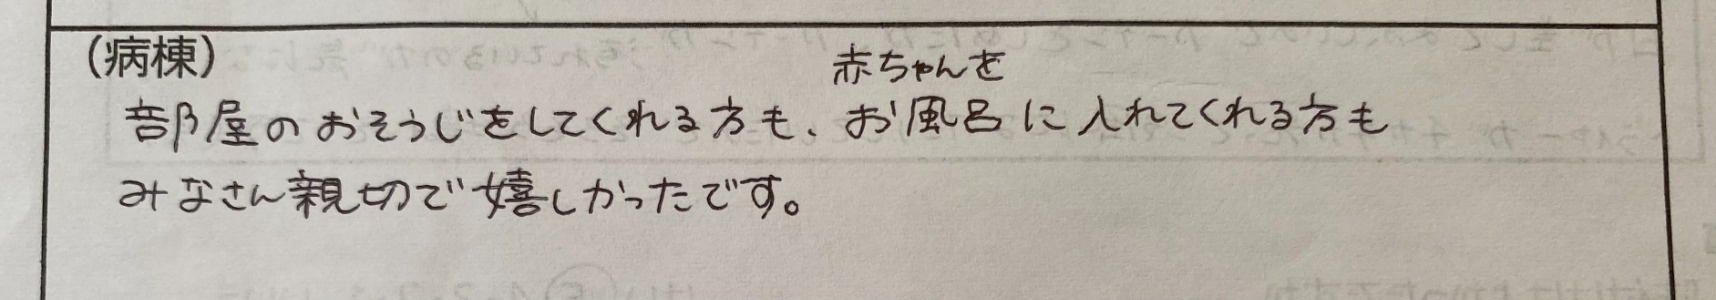 (病棟)
赤ちゃんを
部屋のおそうじをしてくれる方も、お風呂に入れてくれる方も
みなさん親切で嬉しかったです。